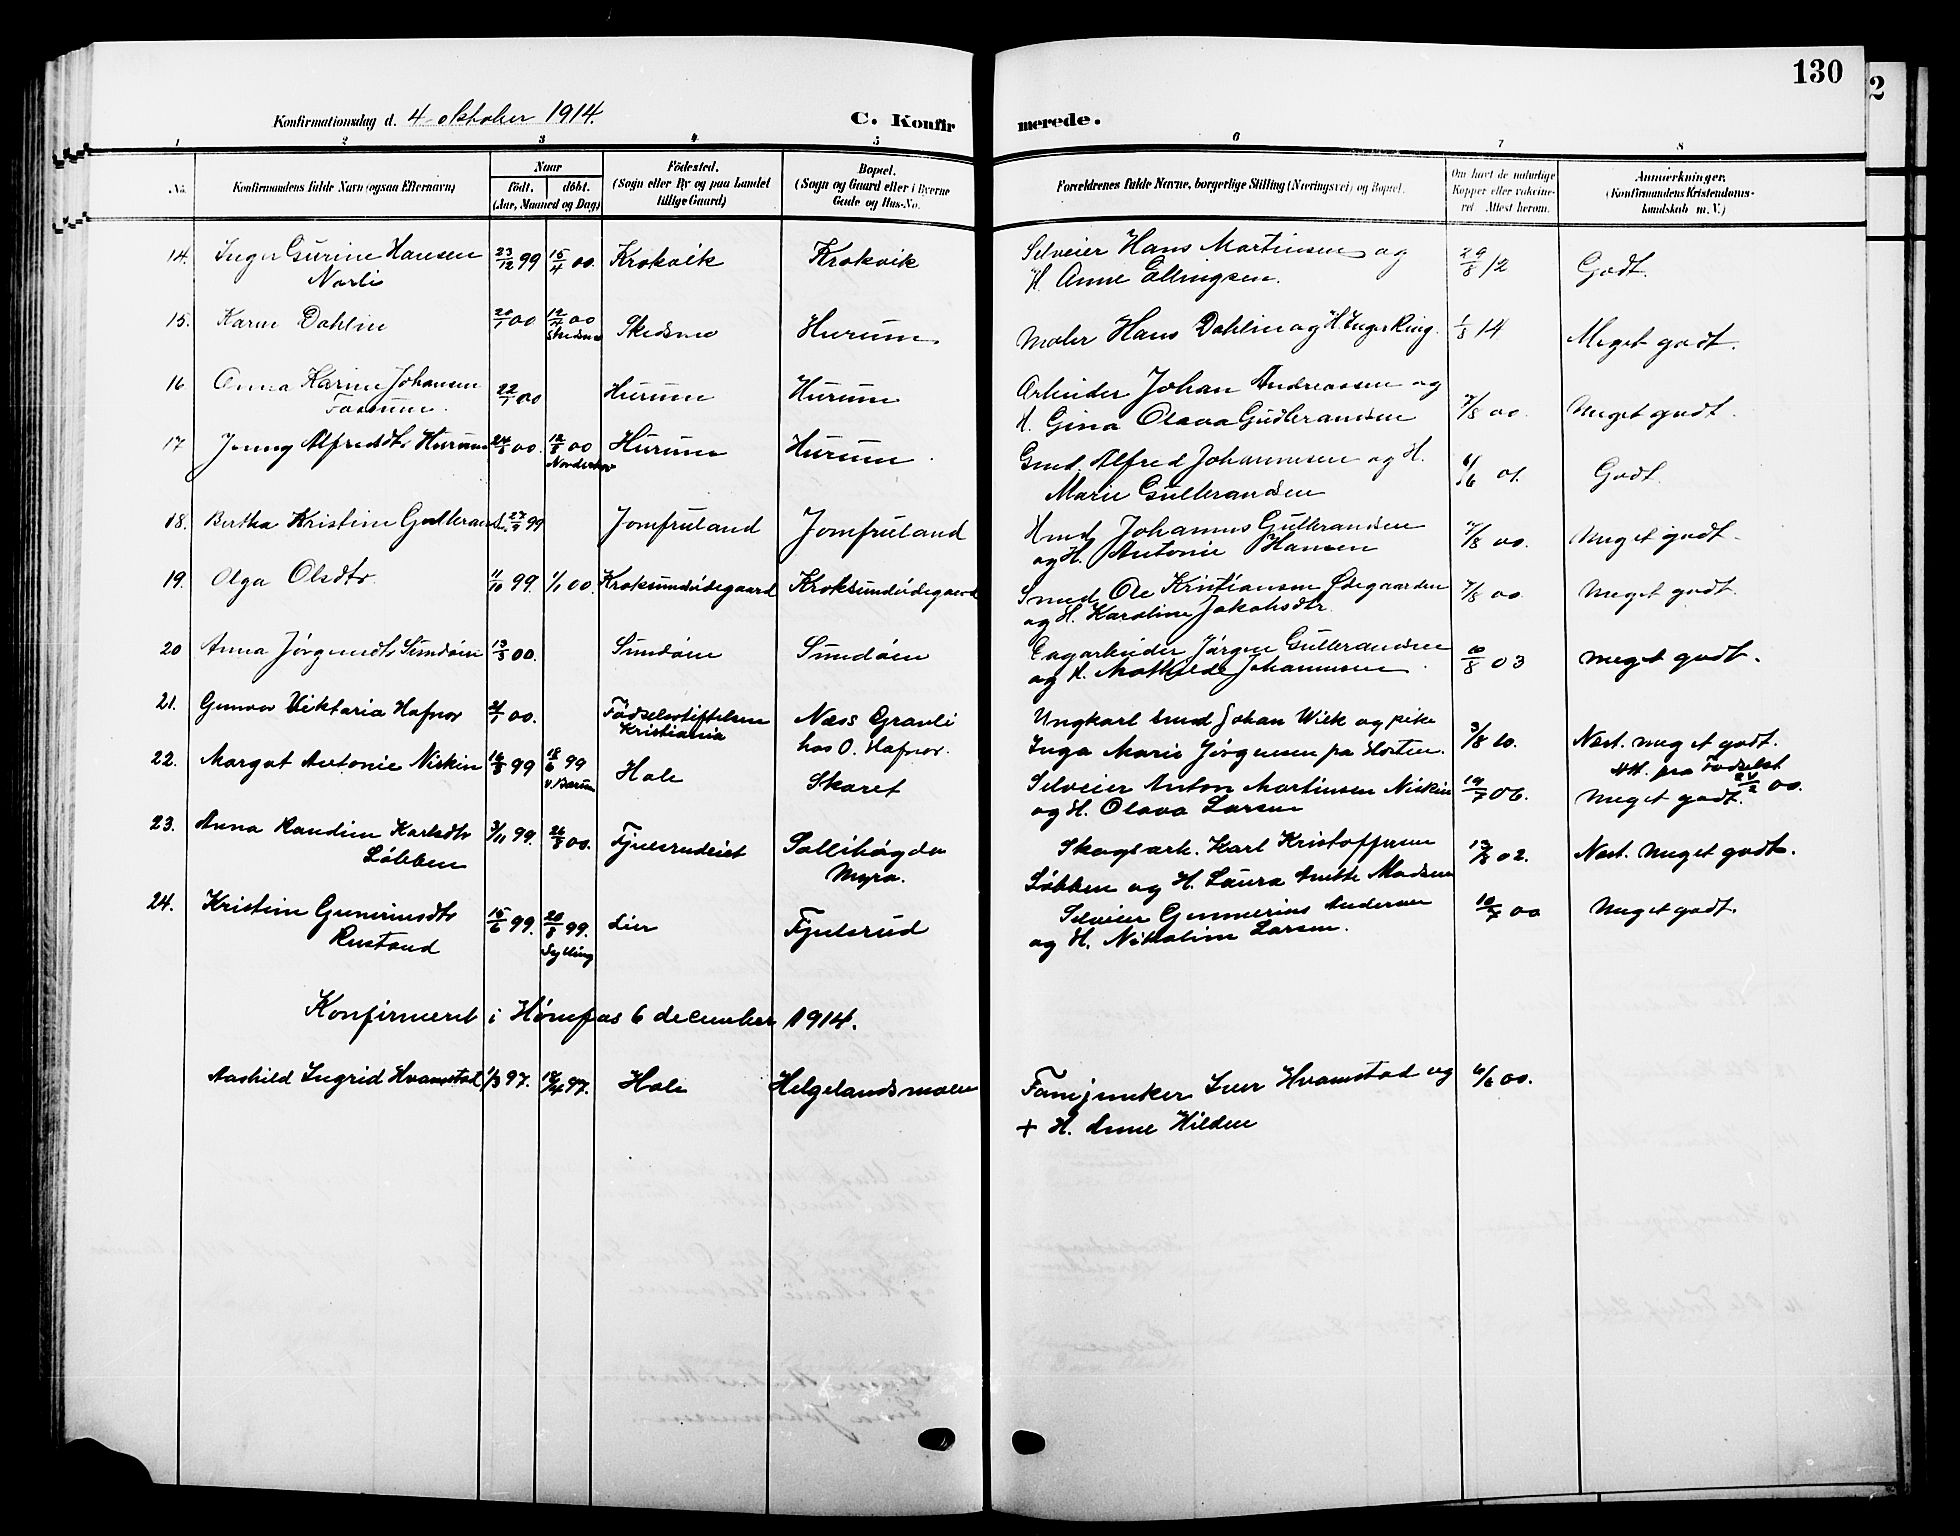 130
2
Konfirmationsdag d. 4 oktober 1914.
C. Konfirmerede.
1 2 3 4 5 6 7 8
No.
Konfirmandens fulde Navn (ogsaa Efternavn)
Naar
født. døbt.
(Aar, Maaned og Dag)
Födested.
(Sogn eller By og paa Landet
tillige Gaard)
Bopæl.
(Sogn og Gaard eller i Byerne
Gade og Hus-No.
Forældrenes fulde Navne, borgerlige Stilling (Næringsvei) og Bopæl.
Om havt de naturlige
Kopper eller vakcine-
ret Attest herom.
Anmerkninger,
(Konfirmandens Kristendoms-
kundskab m. V.)
14. Inger Gurine Hansen 23/12 99 15/4 00. Krokvik Krokvik Selveier Hans Martinsen og 29/8 12 Godt.
Norli H. Anne Ellingsen.
15. Karen Dahlin 20/1 00 12/4 00 Skedsmo Hurum Maler Hans Dahlin og H. Inger Ring. 1/8 14 Meget godt.
Skedsmo
16 Anna Karine Johansen 22/1 00 Hurum Hurum Arbeider Johan Andreassen og
Fossum. H. Gina Olava Gudbrandsen 7/8 00. Meget godt.
17 Jenny Alfredsdtr Hurum 24/5 00. 12/8 00 Hurum Hurum. Gmd. Alfred Johannesen og H. 6/6 01. Godt.
Norderhov Marie Gulbrandsen
18. Bertha Kristine Gulbrands. 27/9 99 Jomfruland Jomfruland Hmd Johannes Gulbrandsen 7/8 00. Meget godt.
og H. Antonie Hansen
19. Olga Olsdtr. 11/10 99. 1/1 00. Kroksundødegaard Kroksundødegaard Smed Ole Kristiansen Ødegaarden 7/8 00. Meget godt.
og H. Karoline Jakobsdtr.
20 Anna Jørgensdtr Sundøen 13/3 00. Sundøen Sundøen Dagarbeider Jørgen Gulbrandsen 10/8 03 meget godt.
og H. Mathilde Johannesen.
21. Gunvor Viktoria Hafnor 21/1 00. Fødselsstiftelsen Næss Gravli Ungkarl smed Johan Wiik og pike 3/8 10. Næst. meget godt.
Kristiania hos O. Hafnor. Inga Marie Jørgensen pa Horten. Att. fra Fødselsst 24/2 00.
22. Margot Antonie Niskin 16/3 99 18/6 99 Hole Skaret Selveier Anton Martinsen Niskin 19/7 06. Meget godt.
V. Bærum og H. Olava Larsen
23. Anna Randine Karlsdtr 3/11 99. 26/8 00. Fjulsrudeiet Sollihøgda Skogsarb. Karl Kristoffersen 13/8 02. Næst. meget godt.
Løbben Myra. Løbben og H. Laura Anette Madsen
24. Kristine Gunerius dtr 15/6 99. 20/8 99. Lier Fjulsrud Selveier Gunnerius Andersen 10/7 00 Meget godt.
Rustand Sylling og H. Nikoline Larsen.
Konfirmeret i Hønefos 6 december 1914.
Aashild Ingrid Hvamstad 1/3 97. 19/4 97. Hole Helgelandsmoen Fanejunker Iver Hvamstad og 6/6 00.
+ H. Anne Hilden